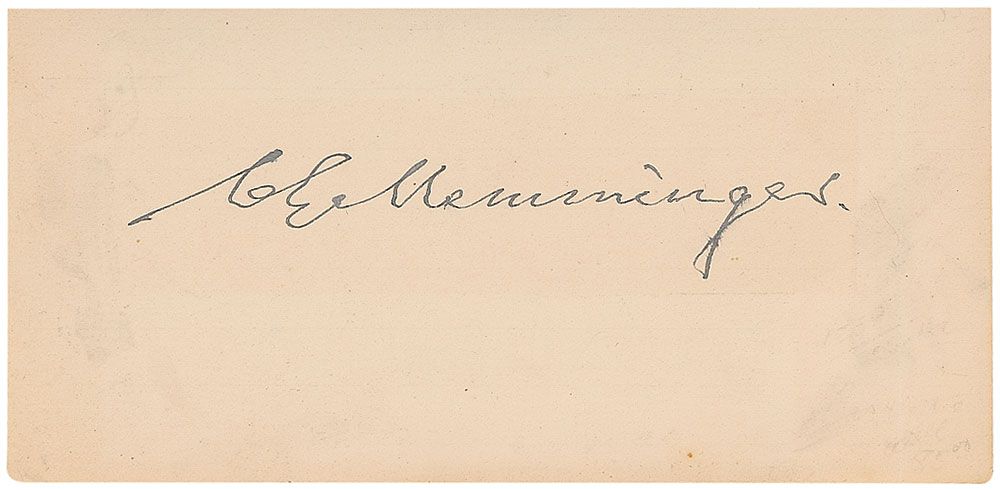 C G Memminger.